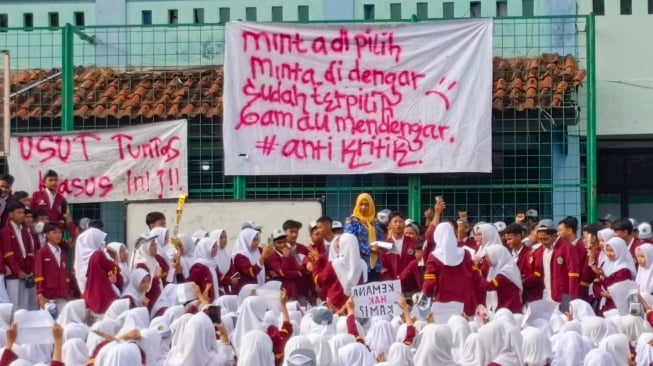 minta di pilih
minta di dengar
Sudah terpilih
Gamau mendengar.
#anti kritik?
USUT TUNTAS
Kasus Ini!!
KEMANA
HAK
KAMI